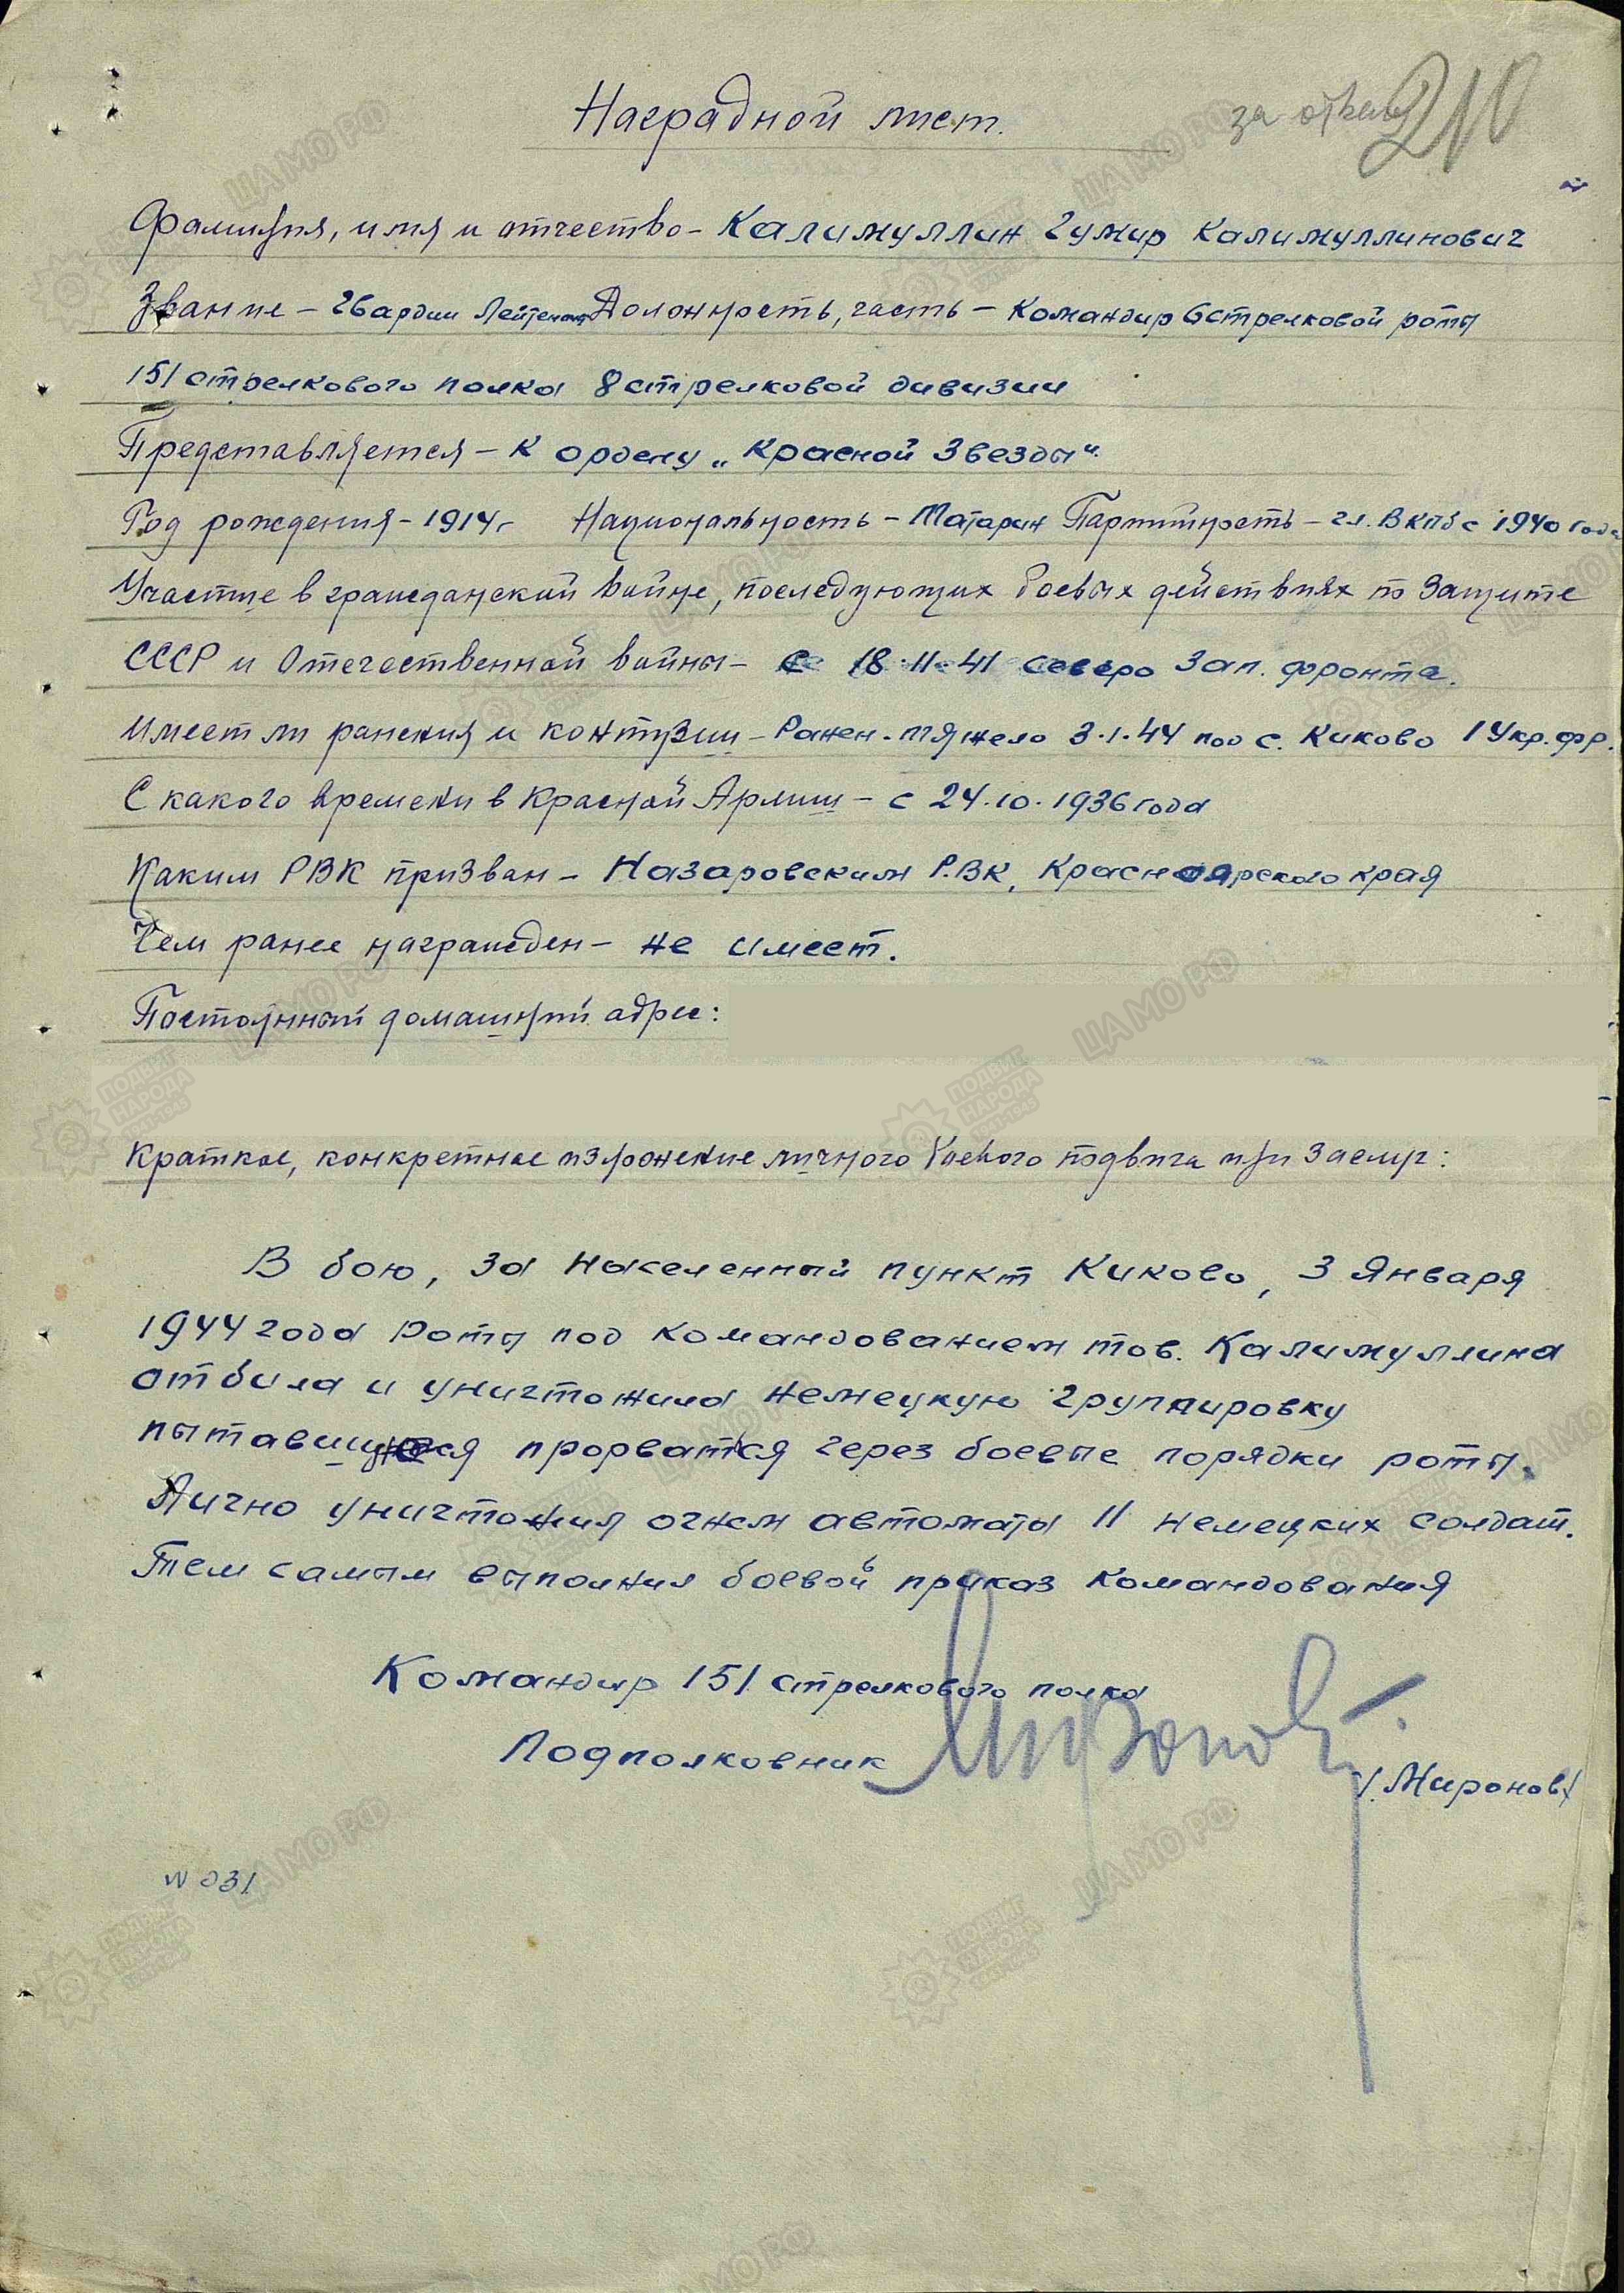 Наградной лист.
за отвагу 210
Фамилия, имя и отчество - Калимуллин Гумир Калимуллинович
Звание - Гвардии Лейтенант Должность, часть - Командир 6 стрелковой роты
151 стрелкового полка 8 стрелковой дивизии
Представляется - К ордену „Красной Звезды“.
Год рождения - 1914 г Национальность - Татарин Партийность - чл. ВКПб с 1940 года
Участие в гражданской войне, последующих боевых действиях по защите
СССР и Отечественной войны - с 18.11.41 северо Зап. фронта.
Имеет ли ранения и контузии - Ранен-тяжело 3.1.44 под с. Киково 1 Укр. фр.
С какого времени в Красной Армии - с 24.10.1936 года
Каким РВК призван - Назаровским Р.ВК, Красноярского края
Чем ранее награжден - не имеет.
Постоянный домашний адрес:
Краткое, конкретное изложение личного боевого подвига или заслуг:
В бою, за населенный пункт Киково, 3 Января
1944 года Рота под командованием тов. Калимуллина
отбила и уничтожила немецкую группировку
пытавшуюся прорватся через боевые порядки роты.
Лично уничтожил огнем автомата 11 немецких солдат.
Тем самым выполнил боевой приказ командования
Командир 151 стрелкового полка
Подполковник Миронов
/Миронов/
N 031
ЦАМО РФ
ПОДВИГ НАРОДА